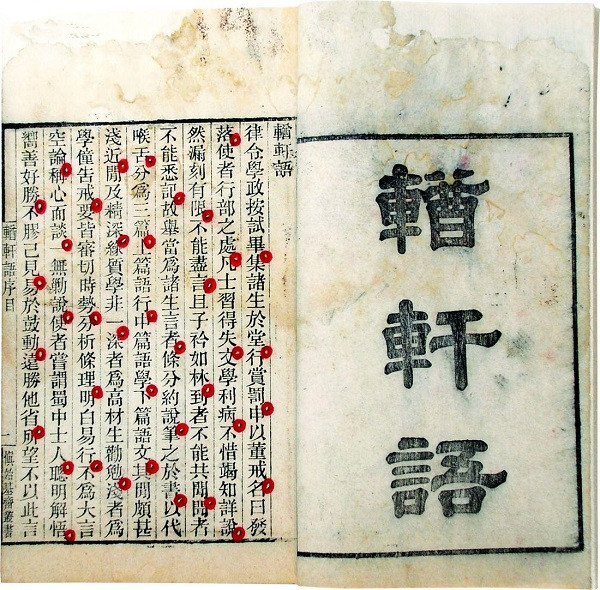 輶軒語
輶軒語
律令學政按試畢集諸生於堂行賞罰申以董戒名曰發
落使者行部之處凡士習得失文學利病不惜竭知詳說
然漏刻有限不能盡言且子衿如林到者不能共聞聞者
不能悉記故舉當爲諸生言者條分約說筆之於書以代
喉舌分爲三篇上篇語行中篇語學下篇語文其閒頗甚
淺近閒及精深緣質學非一深者爲高材生勸勉淺者爲
學僮告戒要皆審切時勢分析條理明白易行不爲大言
空論稱心而談無勦說使者嘗謂蜀中士人聰明解悟
嚮善好勝不膠己見易於鼓動遠勝他省所望不以此言
輶軒語序目 一 慎始基齋叢書